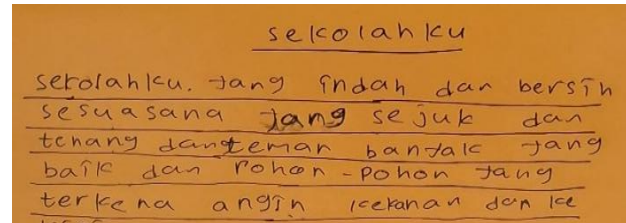 sekolahku
sekolahku. yang indah dan bersih
sesuasana yang sejuk dan
tenang dan teman banyak yang
baik dan pohon-pohon yang
terkena angin kekanan dan ke